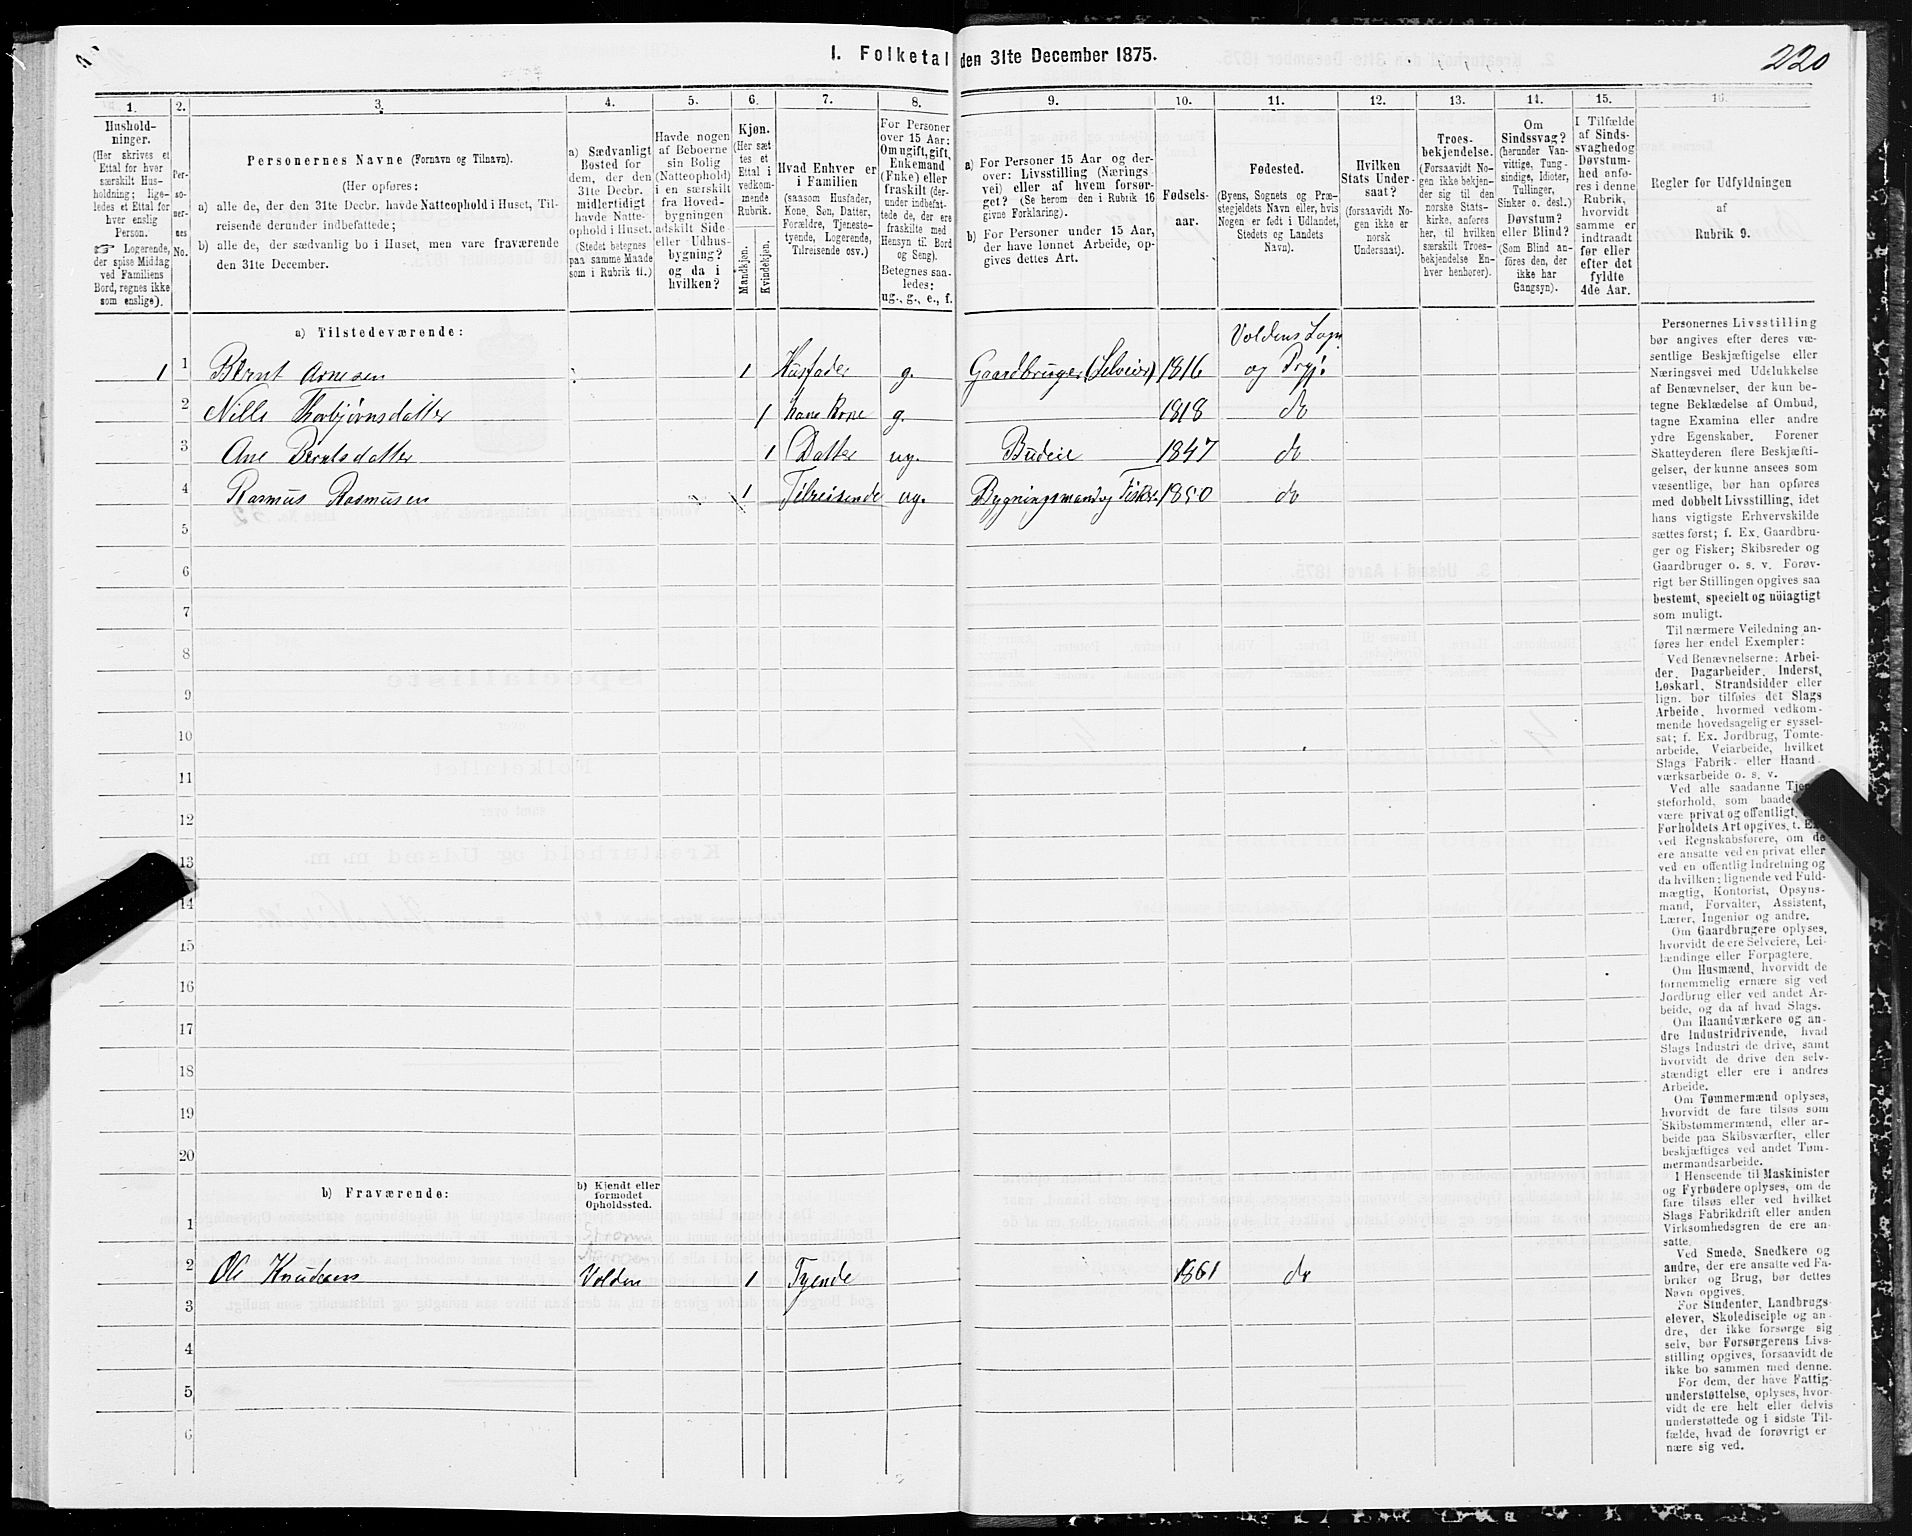 1. Folketal den 31te December 1875.
220
1. 2. 3. 4. 5. 6. 7. 8. 9. 10. 11. 12. 13. 14. 15. 16.
Hushold-
ninger.
(Her skrives et
Ettal for hver
særskilt Hus-
holdning; lige-
ledes et Ettal for
hver enslig
Person.
☞ Logerende,
der spise Middag
ved Familiens
Bord, regnes ikke
som enslige).
Per-
so-
ner-
nes
No.
Personernes Navne (Fornavn og Tilnavn).
(Her opføres:
a) alle de, der den 31te Decbr. havde Natteophold i Huset, Til-
reisende derunder indbefattede;
b) alle de, der sædvanlig bo i Huset, men vare fraværende
den 31te December.
a) Sædvanligt
Bosted for
dem, der den
31te Decbr.
midlertidigt
havde Natte-
ophold i Huset.
(Stedet betegnes
paa samme Maade
som i Rubrik 11.)
Havde nogen
af Beboerne
sin Bolig
(Natteophold)
i en særskilt
fra Hoved-
bygningen
adskilt Side
eller Udhus-
bygning?
og da i
hvilken?
Kjøn.
(Her sæt
tes et
Ettal i
vedkom-
mende
Rubrik.
Mandkjøn.
Kvindekjøn.
Hvad Enhver er
i Familien
(saasom Husfader,
Kone, Søn, Datter,
Forældre, Tjeneste-
tyende, Logerende,
Tilreisende osv.)
For Personer
over 15 Aar:
Om ugift, gift,
Enkemand
(Enke) eller
fraskilt (der-
under indbefat-
tede de, der ere
fraskilte med
Hensyn til Bord
og Seng).
Betegnes saa-
ledes:
ug., g., e., f.
a) For Personer 15 Aar og der-
over: Livsstilling (Nærings
vei) eller af hvem forsør-
get? (Se herom den i Rubrik 16
givne Forklaring).
b) For Personer under 15 Aar,
der have lønnet Arbeide, op-
gives dettes Art.
Fødsels-
aar.
Fødested.
(Byens, Sognets og Præ-
stegjeldets Navn eller, hvis
Nogen er født i Udlandet,
Stedets og Landets
Navn).
Hvilken
Stats Under-
saat?
(forsaavidt No-
gen ikke er
norsk
Undersaat).
Troes-
bekjendelse.
(Forsaavidt No-
gen ikke bekjen-
der sig til den
norske Stats-
kirke, anføres
her, til hvilken
særskilt Troes-
bekjendelse En-
hver henhører).
Om
Sindssvag?
(herunder Van-
vittige, Tung-
sindige, Idioter,
Tullinger,
Sinker o. desl.)
Døvstum?
eller Blind?
(Som Blind an-
føres den, der
ikke har
Gangsyn).
I Tilfælde
af Sinds-
svaghed og
Døvstum-
hed anfø-
res i denne
Rubrik,
hvorvidt
samme er
indtraadt
før eller
efter det
fyldte
4de Aar.
Regler for Udfyldningen
af
Rubrik 9.
a) Tilstedeværende:
Voldens Sogn
1 1 Bernt Arnesen 1 Husfader g. Gaardbruger (Selveier) 1816 og Prgj.
2 Nille Thorbjørnsdatter 1 hans Kone g. 1818 do
3 Ane Berntsdatter 1 Datter ug. Budeie 1847 do
4 Rasmus Rasmusen 1 Tilreisende ug. Bygningsmand og Fisker 1850 do
5
6
7
8
9
10
11
12
13
14
15
16
17
18
19
20
b) Fraværende:
b) Kjendt eller
formodet
Opholdssted.
1
2 Ole Knudsen Volden 1 Tyende 1861 do
3
4
5
6
Personernes Livsstilling
bør angives efter deres væ-
sentlige Beskjæftigelse eller
Næringsvei med Udelukkelse
af Benævnelser, der kun be-
tegne Beklædelse af Ombud,
tagne Examina eller andre
ydre Egenskaber. Forener
Skatteyderen flere Beskjæfti-
gelser, der kunne ansees som
væsentlige, bør han opføres
med dobbelt Livsstilling, idet
hans vigtigste Erhvervskilde
sættes først; f. Ex. Gaardbru-
ger og Fisker; Skibsreder og
Gaardbruger o. s. v. Forøv-
rigt bør Stillingen opgives saa
bestemt, specielt og nöiagtigt
som muligt.
Til nærmere Veiledning an-
føres her endel Exempler:
Ved Benævnelserne: Arbei-
der, Dagarbeider, Inderst,
Løskarl, Strandsidder eller
lign. bør tilføies det Slags
Arbeide, hvormed vedkom-
mende hovedsagelig er syssel-
sat; f. Ex. Jordbrug, Tomte-
arbeide, Veiarbeide, hvilket
Slags Fabrik- eller Haand-
værksarbeide o. s. v.
Ved alle saadanne Tjen
steforhold, som baade
være privat og offentligt,
Forholdets Art opgives, t. E
ved Regnskabsførere, om de
ere ansatte ved en privat eller
ved en offentlig Indretning og
da hvilken; lignende ved Fuld-
mægtig, Kontorist, Opsyns-
mand, Forvalter, Assistent,
Lærer, Ingeniør og andre.
Om Gaardbrugere oplyses,
hvorvidt de ere Selveiere, Lei-
lændinge eller Forpagtere.
Om Husmænd, hvorvidt de
fornemmelig ernære sig ved
Jordbrug eller ved andet Ar-
beide, og da af hvad Slags.
Om Haandværkere og an-
dre Industridrivende, hvad
Slags Industri de drive, samt
hvorvidt de drive den selv-
stændigt eller ere i andres
Arbeide.
Om Tømmermænd oplyses,
hvorvidt de fare tilsøs som
Skibstømmermænd, eller ar-
beide paa Skibsværfter, eller
beskjæftiges ved andet Tøm-
mermandsarbeide.
I Henseende til Maskinister
og Fyrbødere oplyses, om de
fare tilsøs eller ved hvilket
Slags Fabrikdrift eller anden
Virksomhedsgren de ere an-
satte.
Ved Smede, Snedkere og
andre, der ere ansatte ved Fa-
briker og Brug, bør dettes
Navn opgives.
For Studenter, Landbrugs-
elever, Skoledisciple og an-
dre, der ikke forsørge sig
selv, bør Forsørgerens Livs-
stilling opgives, forsaavidt de
ikke bo sammen med denne.
For dem, der have Fattig-
understøttelse, oplyses, hvor-
vidt de ere helt eller delvis
understøttede og i sidste Til-
fælde, hvad de forøvrigt er
nære sig ved.